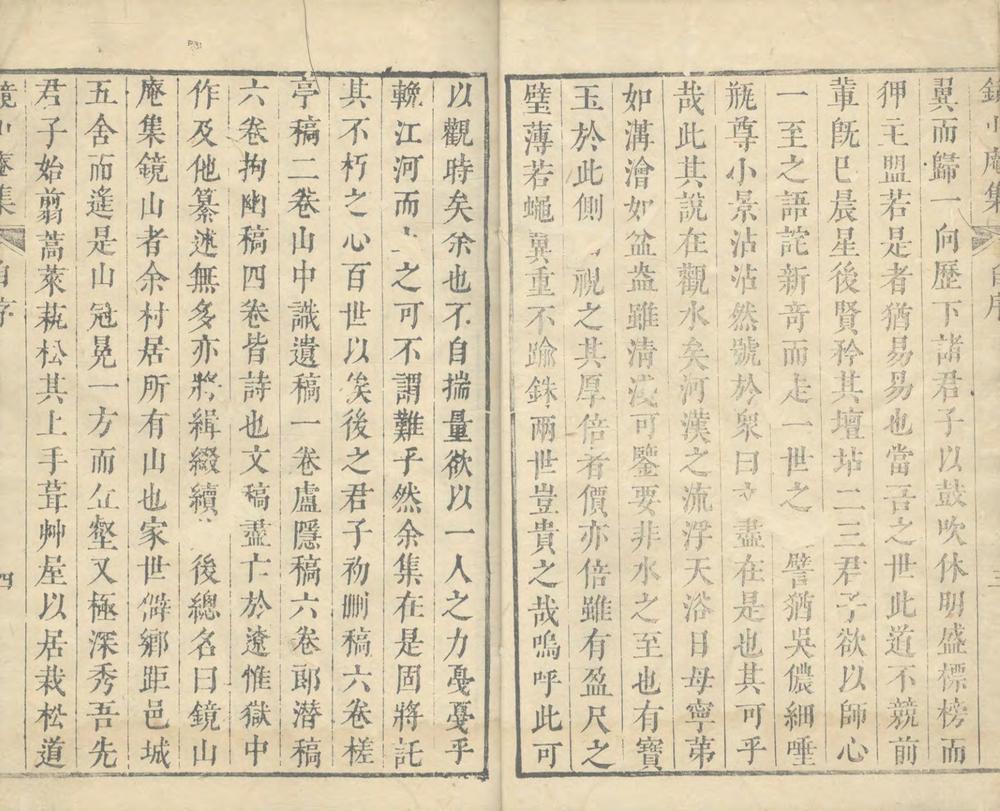 鏡山庵集 自序 三
翼而歸一向歷下諸君子以鼓吹休明盛標榜而
狎主盟若是者猶易易也當吾之世此道不競前
輩旣巳晨星後賢矜其壇坫二三君子欲以師心
一至之語詫新奇而走一世之 譬犹吳儂細唾
瓶尊小景沾沾然號於衆曰 盡在是也其可乎
哉此其說在觀水矣河漢之流浮天浴日母寧第
如溝澮如盆盎雖清淺可鑒要非水之至也有寶
玉於此側 視之其厚倍者價亦倍雖有盈尺之
璧薄若蠅翼重不踰銖兩世豈貴之哉嗚呼此可
以觀時矣余也不自揣量欲以一人之力戞戞乎
輓江河而 之可不謂難乎然余集在是固將託
其不朽之心百世以俟後之君子初刪稿六卷槎
亭稿二卷山中識遺稿一卷盧隱稿六卷郎潛稿
六卷拘幽稿四卷皆詩也文稿盡亡於遼惟獄中
作及他纂述無多亦將緝綴續 後總名曰鏡山
庵集鏡山者余村居所有山也家世僻鄉距邑城
五舍而遙是山冠冕一方而丘壑又極深秀吾先
君子始翦蒿萊蓺松其上手葺艸屋以居栽松道
鏡山庵集 自序 四